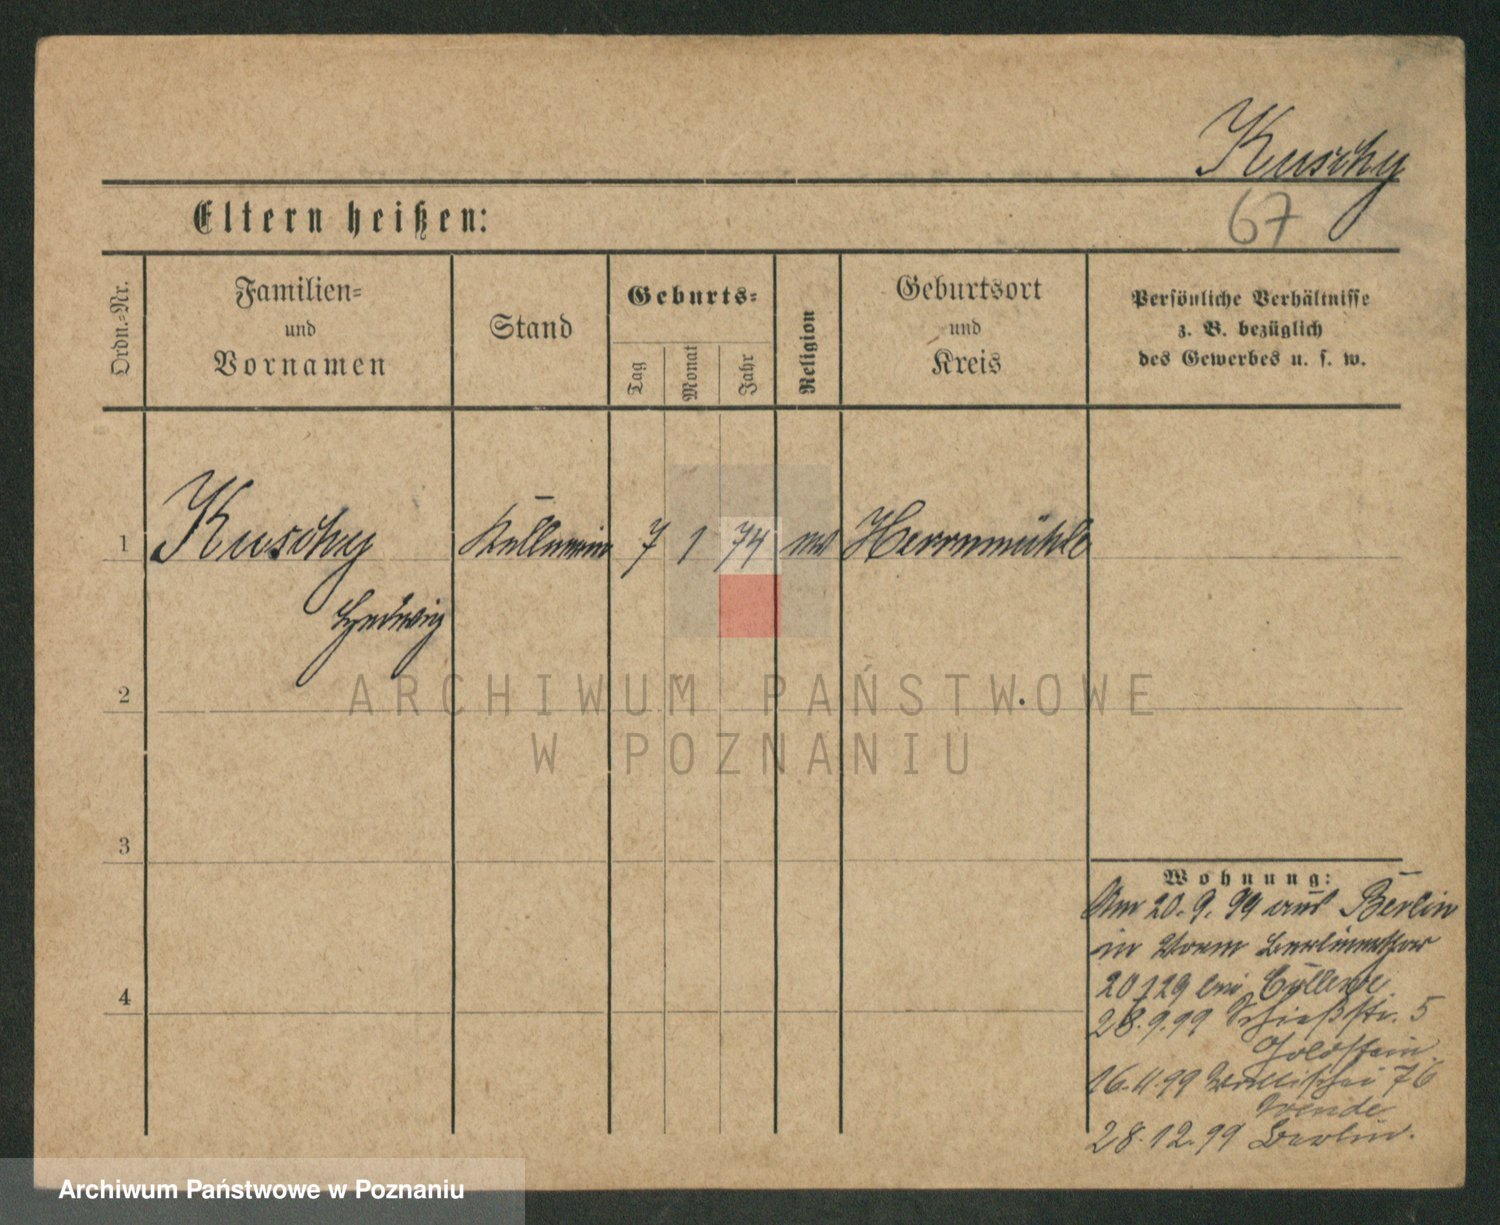 Kuschy
Eltern heißen:
67
Ordn.-Nr.
Familien-
und
Vornamen
Stand
Geburts-
Tag
Monat
Jahr
Religion
Geburtsort
und
Kreis
Persönliche Verhältnisse
z. B. bezüglich
des Gewerbes u. s. w.
1 Kuschy Kellnerin 7 1 74 Herrnmühle
Hedwig
2
3
4
Wohnung:
Am 20. 9. 99 aus Berlin
in
20/29 bei
28.9.99 Schießstr. 5
Goldstein.
16.11.99 Wallischei 76
Wende
28.12.99 Berlin.
ARCHIWUM PAŃSTWOWE
W POZNANIU
Archiwum Państwowe w Poznaniu